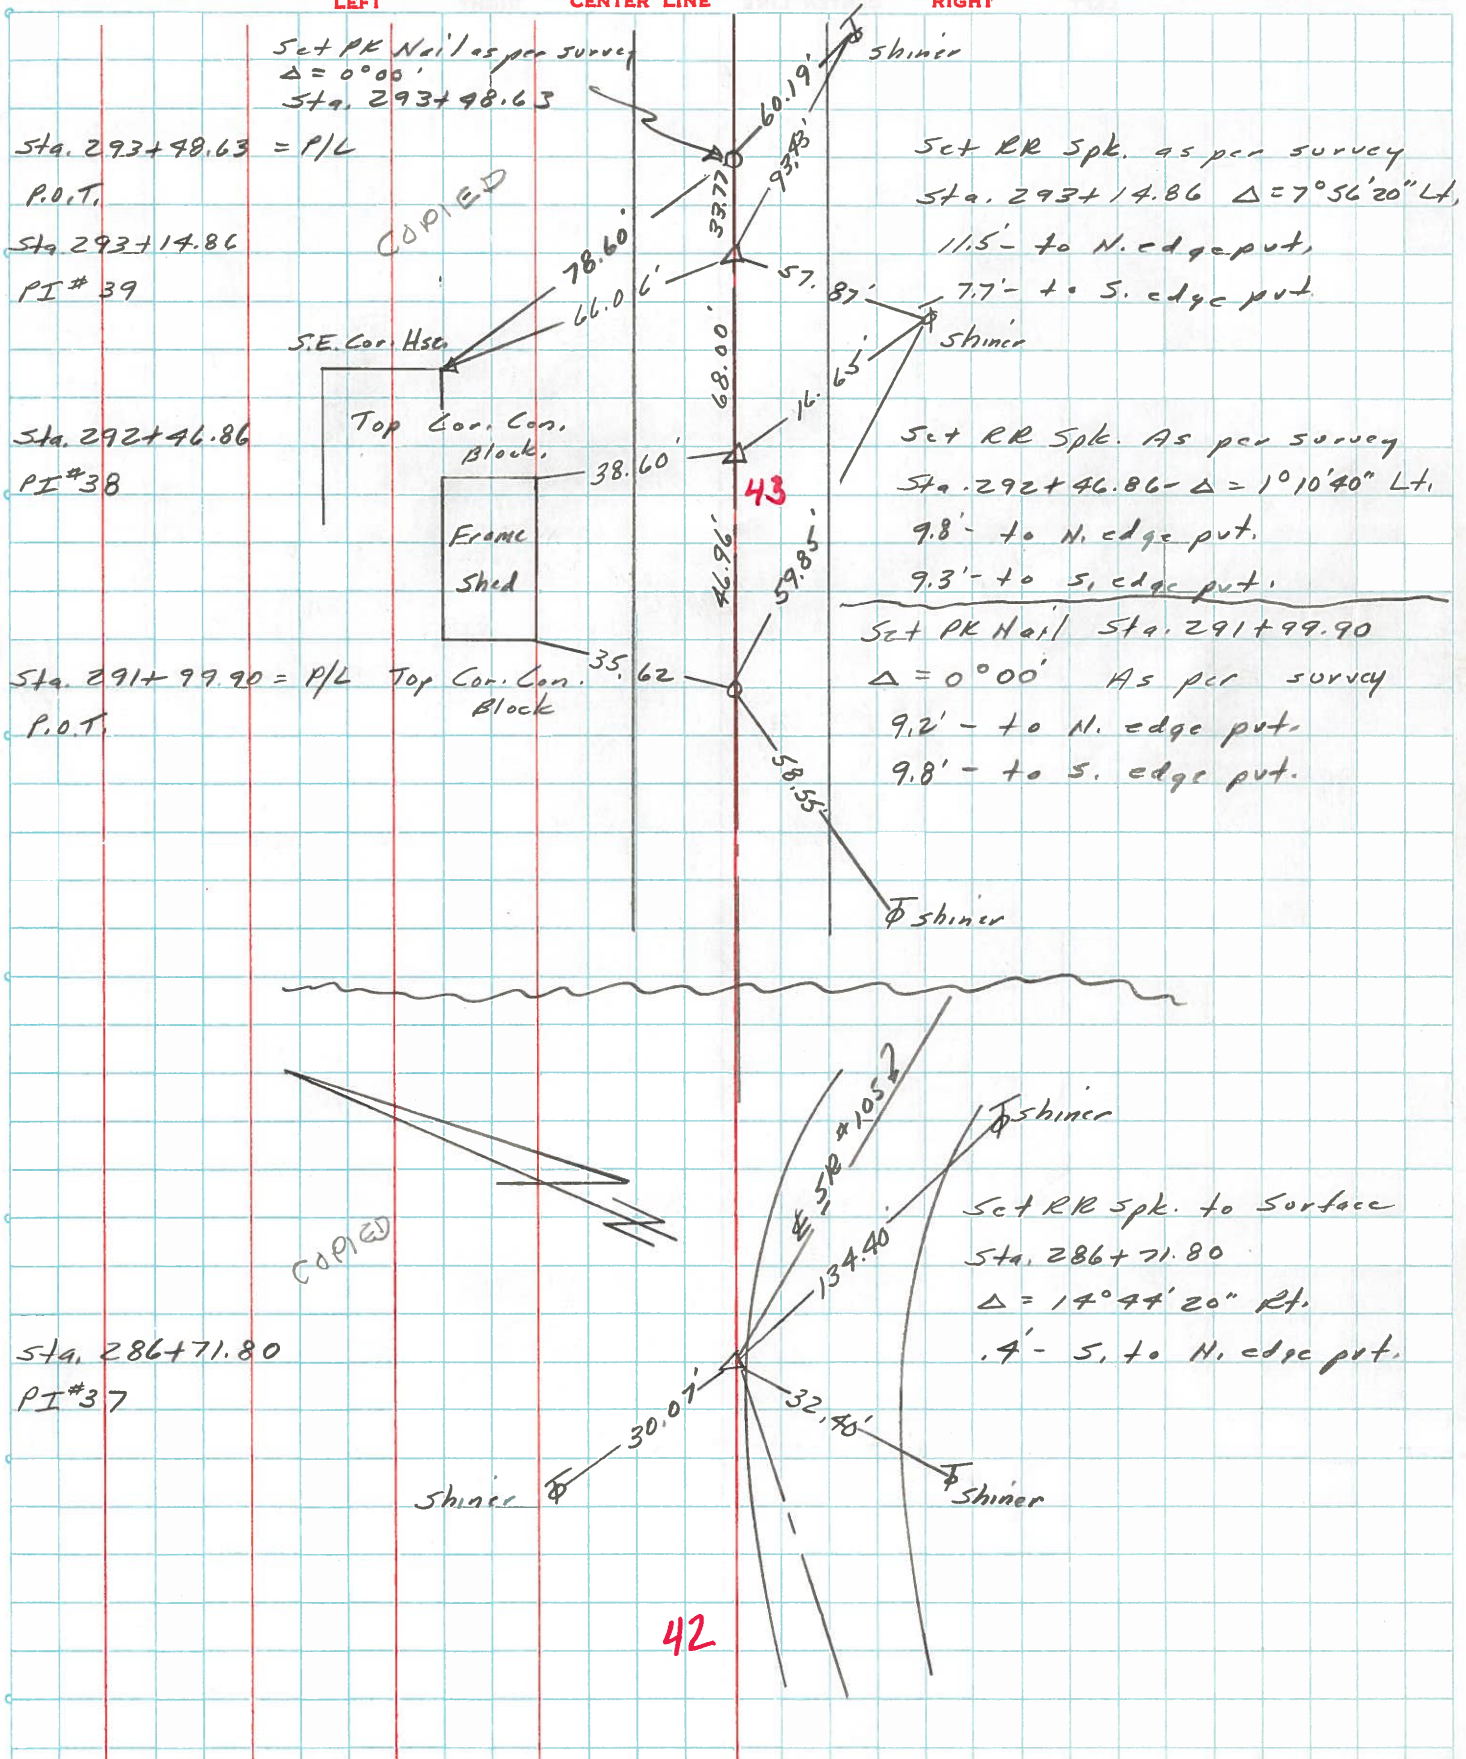 LEFT
CENTER LINE
RIGHT
Set PK Nail as per survey
Δ = 0°00'
Sta. 293+48.63
shiner
60.19'
93.43'
Sta. 293+48.63 = P/L
P.O.T.
Sta 293+14.86
PI # 39
COPIED
33.77'
78.60'
66.06'
57.87'
Set RR Spk. as per survey
Sta. 293+14.86 Δ=7°56'20" Lt.
11.5'- to N. edge pvt.
7.7'- to S. edge pvt.
shiner
S.E. Cor. Hse.
68.00'
16.65'
Top Cor. Con.
Block.
38.60'
Sta. 292+46.86
PI #38
43
Set RR Spk. As per survey
Sta. 292+46.86- Δ = 1°10'40" Lt.
9.8'- to N. edge pvt.
9.3'- to S. edge pvt.
Frame
Shed
46.96'
59.85'
Set PK Nail Sta. 291+99.90
Δ = 0°00' As per survey
9.2' - to N. edge pvt.
9.8' - to S. edge pvt.
Sta. 291+99.90 = P/L
P.O.T.
Top Cor. Con.
Block
35.62
58.55'
shiner
SR #1052
shiner
134.40'
COPIED
Set RR spk. to Surface
Sta. 286+71.80
Δ = 14°44'20" Rt.
.4'- S. to N. edge pvt.
Sta. 286+71.80
PI #37
30.07'
32.40'
shiner
shiner
42